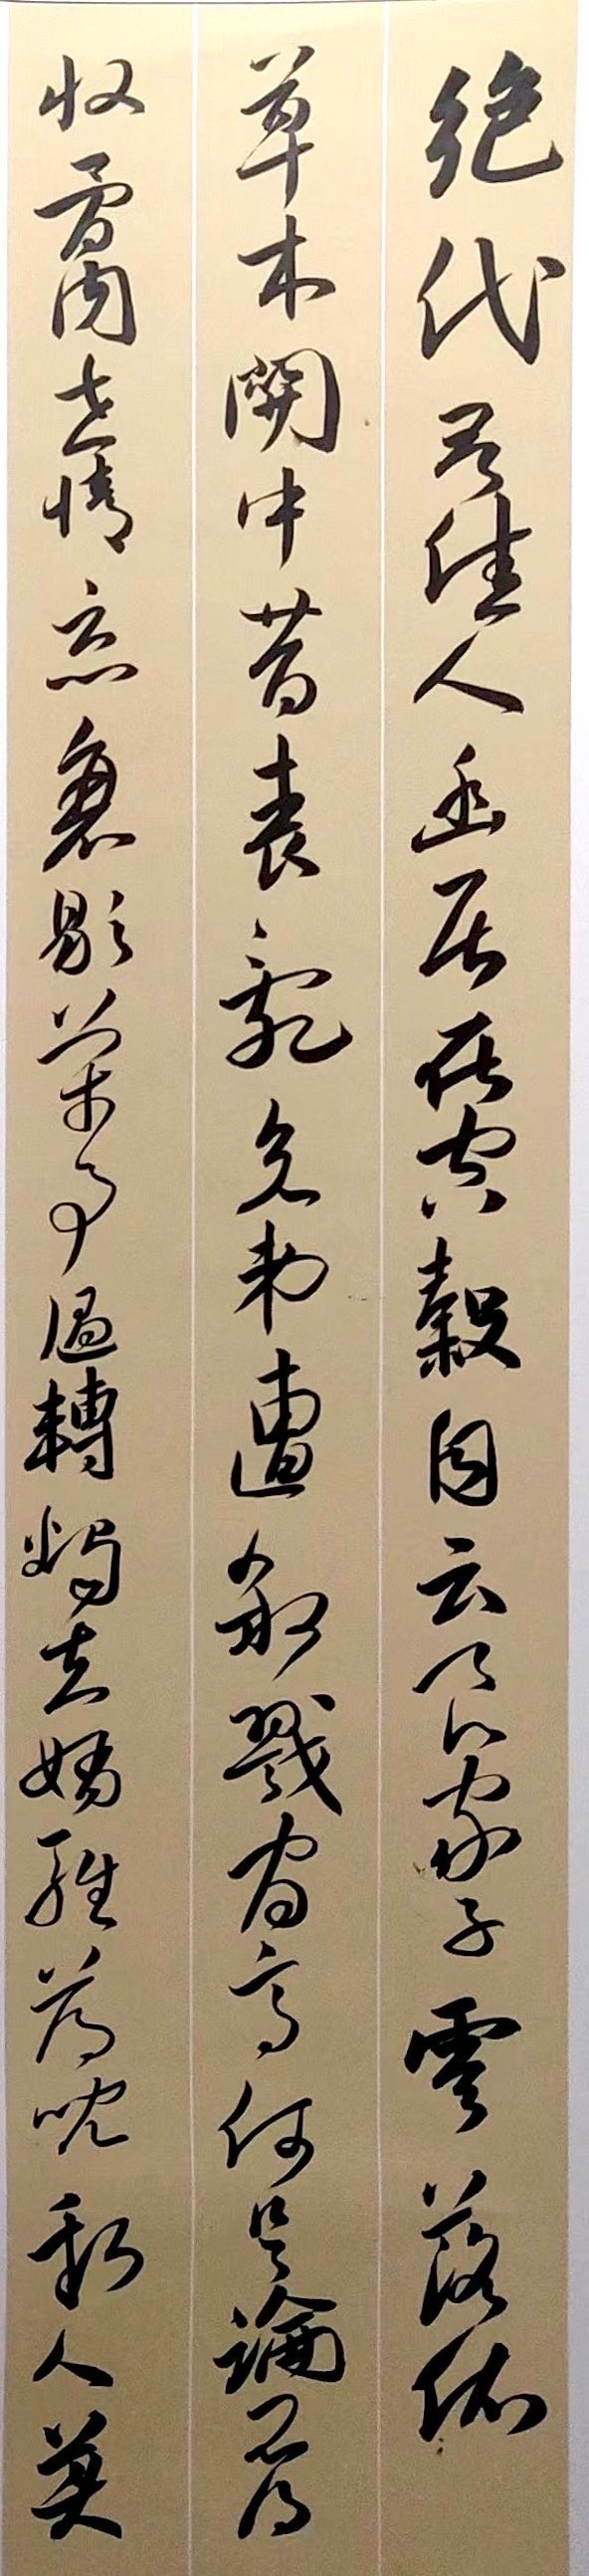 絕代有佳人幽居在空穀自云良家子零落依
草木關中昔喪亂兄弟遭殺戮官高何足論不得
收骨肉世情惡衰歇萬事隨轉燭夫婿輕薄兒新人美